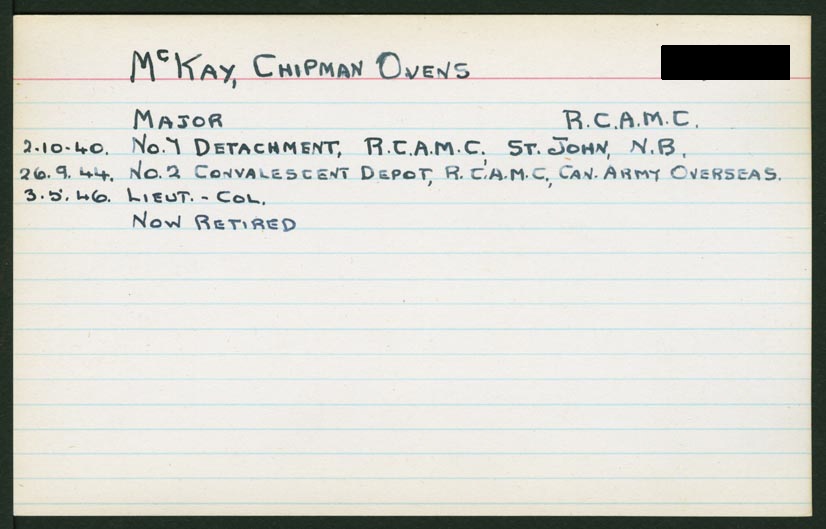 McKAY, CHIPMAN OVENS
MAJOR R.C.A.M.C.
2.10.40. No.7 DETACHMENT, R.C.A.M.C., ST. JOHN, N.B.
26.9.44. No.2 CONVALESCENT DEPOT, R.C.A.M.C., CAN. ARMY OVERSEAS.
3.5.46. LIEUT. - COL.
NOW RETIRED